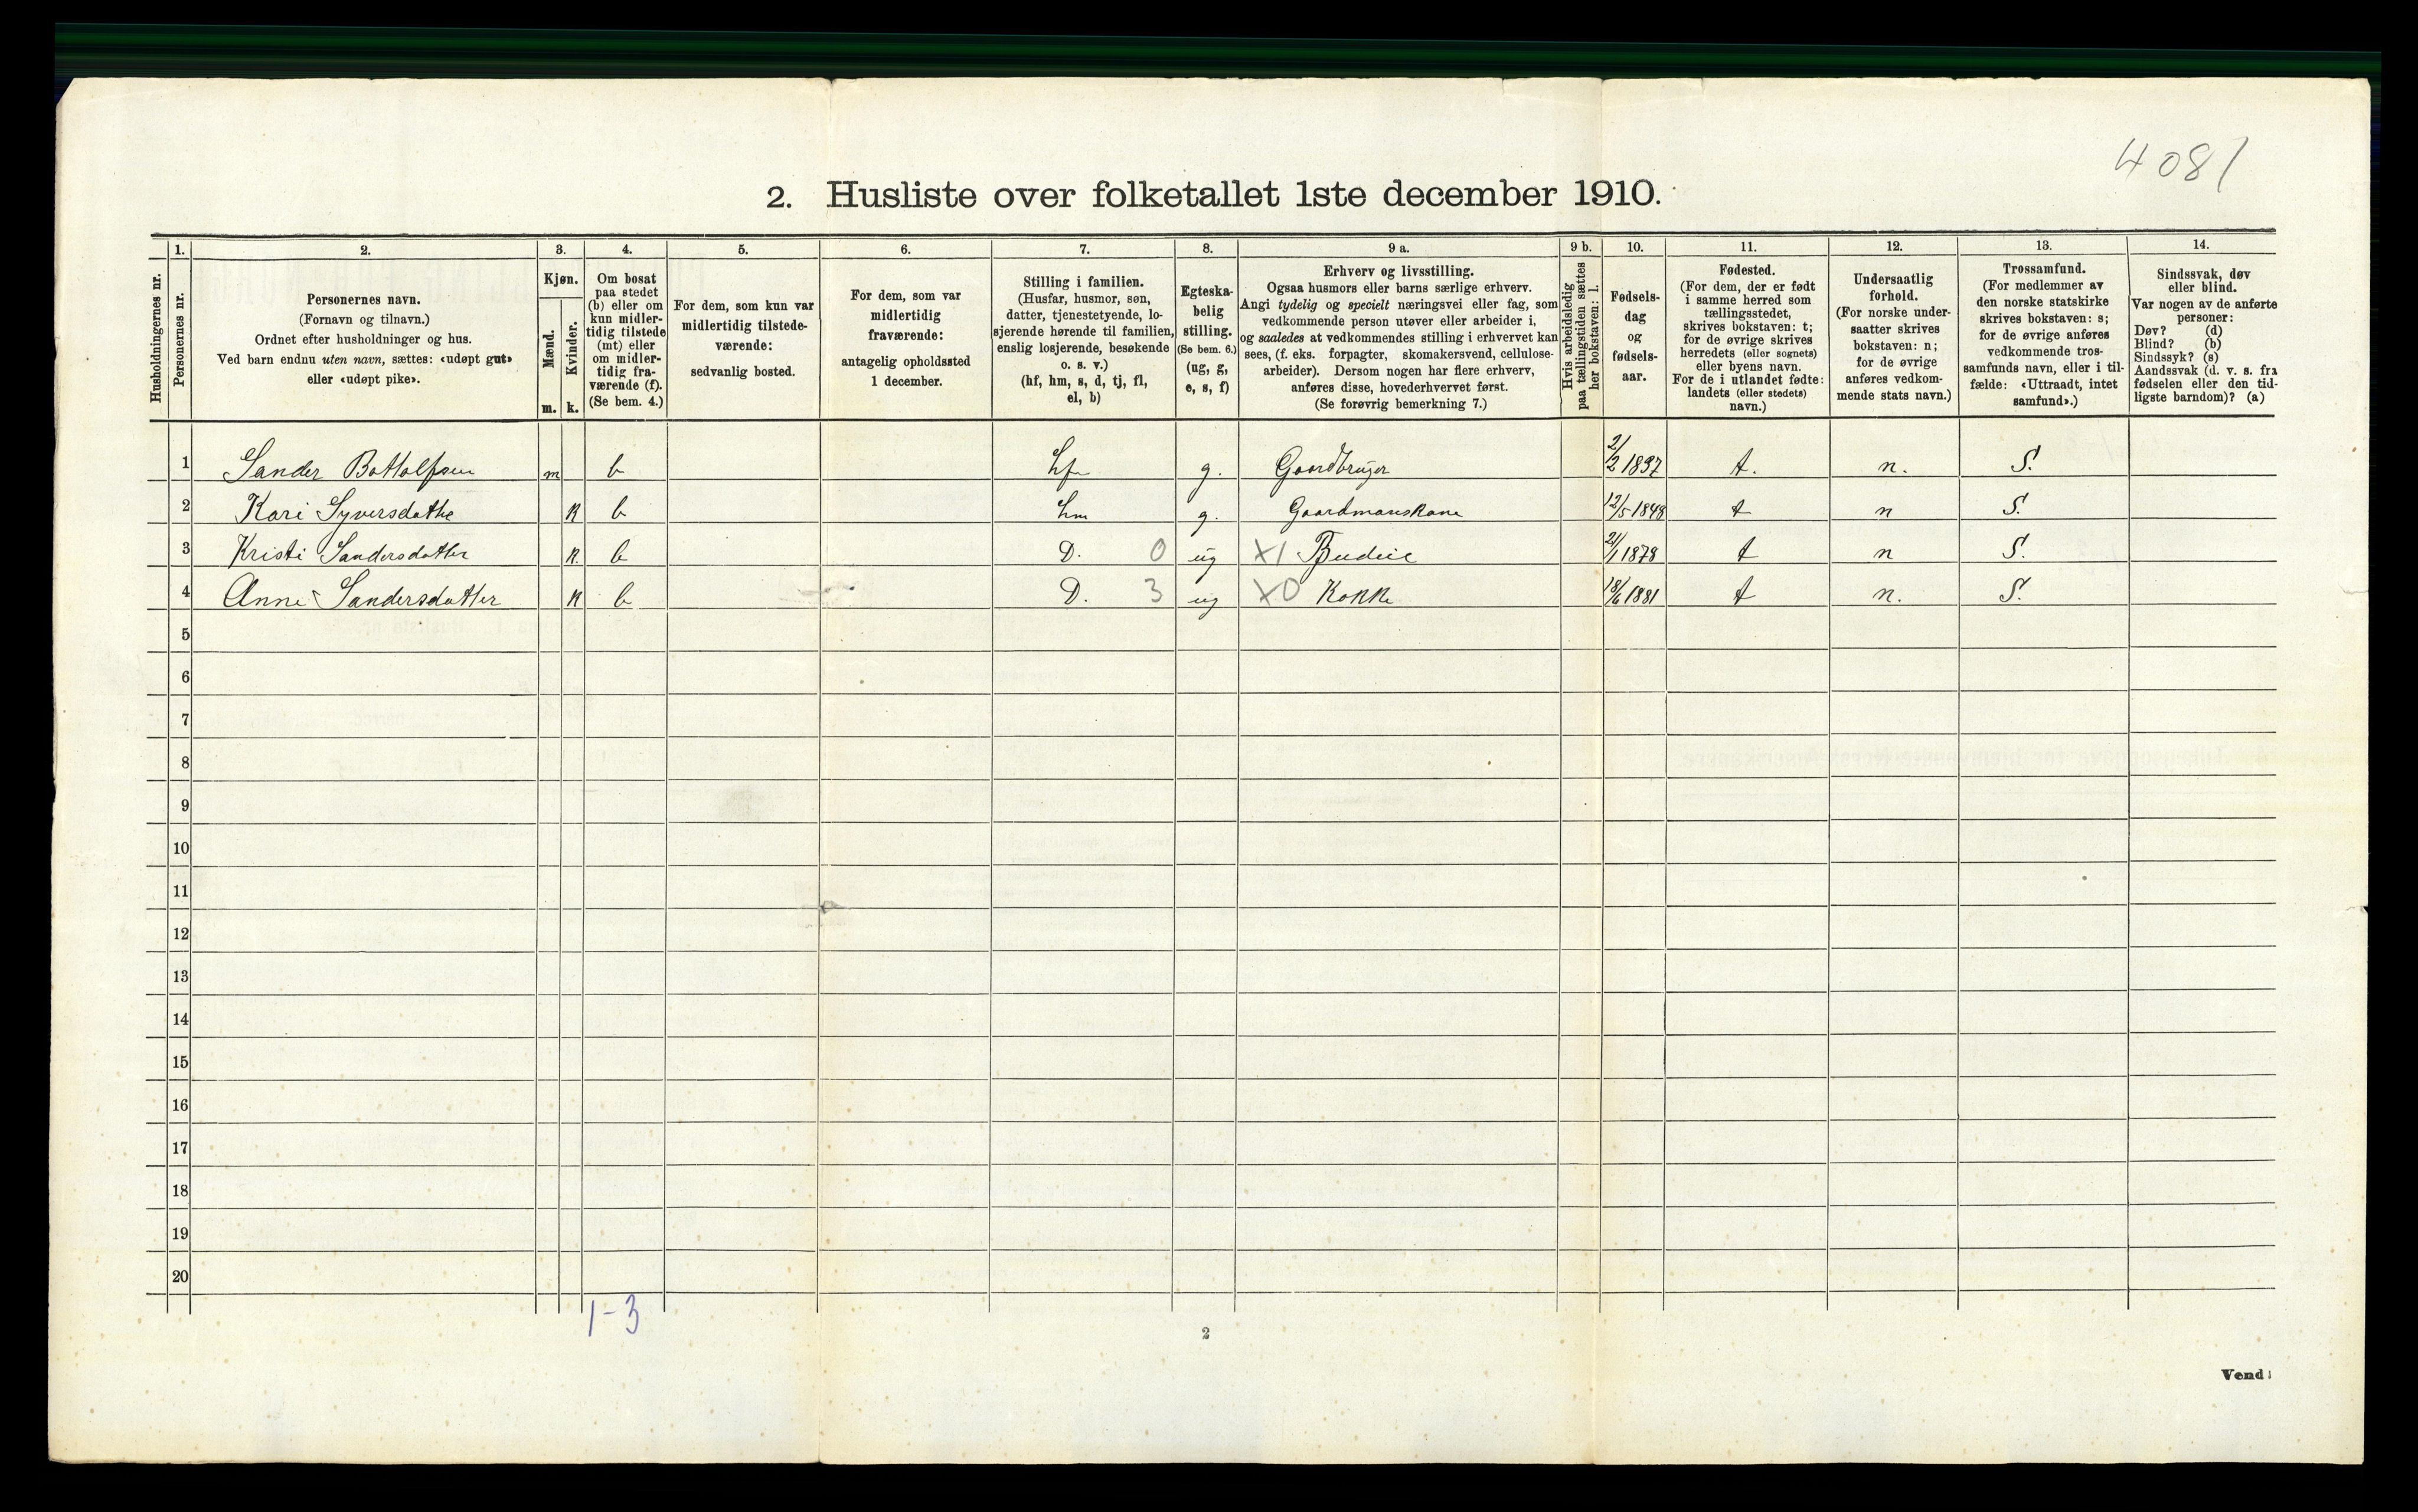 4081
2. Husliste over folketallet 1ste december 1910.
Husholdningernes nr.
1.
Personernes nr.
2.
Personernes navn.
(Fornavn og tilnavn.)
Ordnet efter husholdninger og hus.
Ved barn endnu uten navn, sættes: «udøpt gut»
eller «udøpt pike».
3.
Kjøn.
Mænd.
m.
Kvinder.
k.
4.
Om bosat
paa stedet
(b) eller om
kun midler-
tidig tilstede
(mt) eller
om midler-
tidig fra-
værende (f).
(Se bem. 4.)
5.
For dem, som kun var
midlertidig tilstede-
værende:
sedvanlig bosted.
6.
For dem, som var
midlertidig
fraværende:
antagelig opholdssted
1 december.
7.
Stilling i familien.
(Husfar, husmor, søn,
datter, tjenestetyende, lo-
sjerende hørende til familien,
enslig losjerende, besøkende
o. s. v.)
(hf, hm, s, d, tj, fl,
el, b)
8.
Egteska-
belig
stilling.
(Se bem. 6.)
(ug, g,
e, s, f)
9 a.
Erhverv og livsstilling.
Ogsaa husmors eller barns særlige erhverv.
Angi tydelig og specielt næringsvei eller fag, som
vedkommende person utøver eller arbeider i,
og saaledes at vedkommendes stilling i erhvervet kan
sees, (f. eks. forpagter, skomakersvend, cellulose-
arbeider). Dersom nogen har flere erhverv,
anføres disse, hovederhvervet først.
(Se forøvrig bemerkning 7.)
9 b.
Hvis arbeidsledig
paa tællingstiden sættes
her bokstaven: l.
10.
Fødsels-
dag
og
fødsels-
aar.
11.
Fødested.
(For dem, der er født
i samme herred som
tællingsstedet,
skrives bokstaven: t;
for de øvrige skrives
herredets (eller sognets)
eller byens navn.
For de i utlandet fødte:
landets (eller stedets)
navn.)
12.
Undersaatlig
forhold.
(For norske under-
saatter skrives
bokstaven: n;
for de øvrige
anføres vedkom-
mende stats navn.)
13.
Trossamfund.
(For medlemmer av
den norske statskirke
skrives bokstaven: s;
for de øvrige anføres
vedkommende tros-
samfunds navn, eller i til-
fælde: «Uttraadt, intet
samfund».)
14.
Sindssvak, døv
eller blind.
Var nogen av de anførte
personer:
Døv? (d)
Blind? (b)
Sindssyk? (s)
Aandssvak (d. v. s. fra
fødselen eller den tid-
ligste barndom)? (a)
1 Sander Bottolfsen m b hf g. Gaardbruger 2/2 1837 t. n. S.
2 Kari Syversdatte k b hm g. Gaardmanskone 12/5 1848 t n S.
3 Kristi Sandersdatter k. b D. 0 ug X1 Budeie 21/1 1878 t n S.
4 Anne Sandersdatter k b D. 3 ug X0 Kokke 18/6 1881 t n. S.
5
6
7
8
9
10
11
12
13
14
15
16
17
18
19
20
1-3
2
Vend!